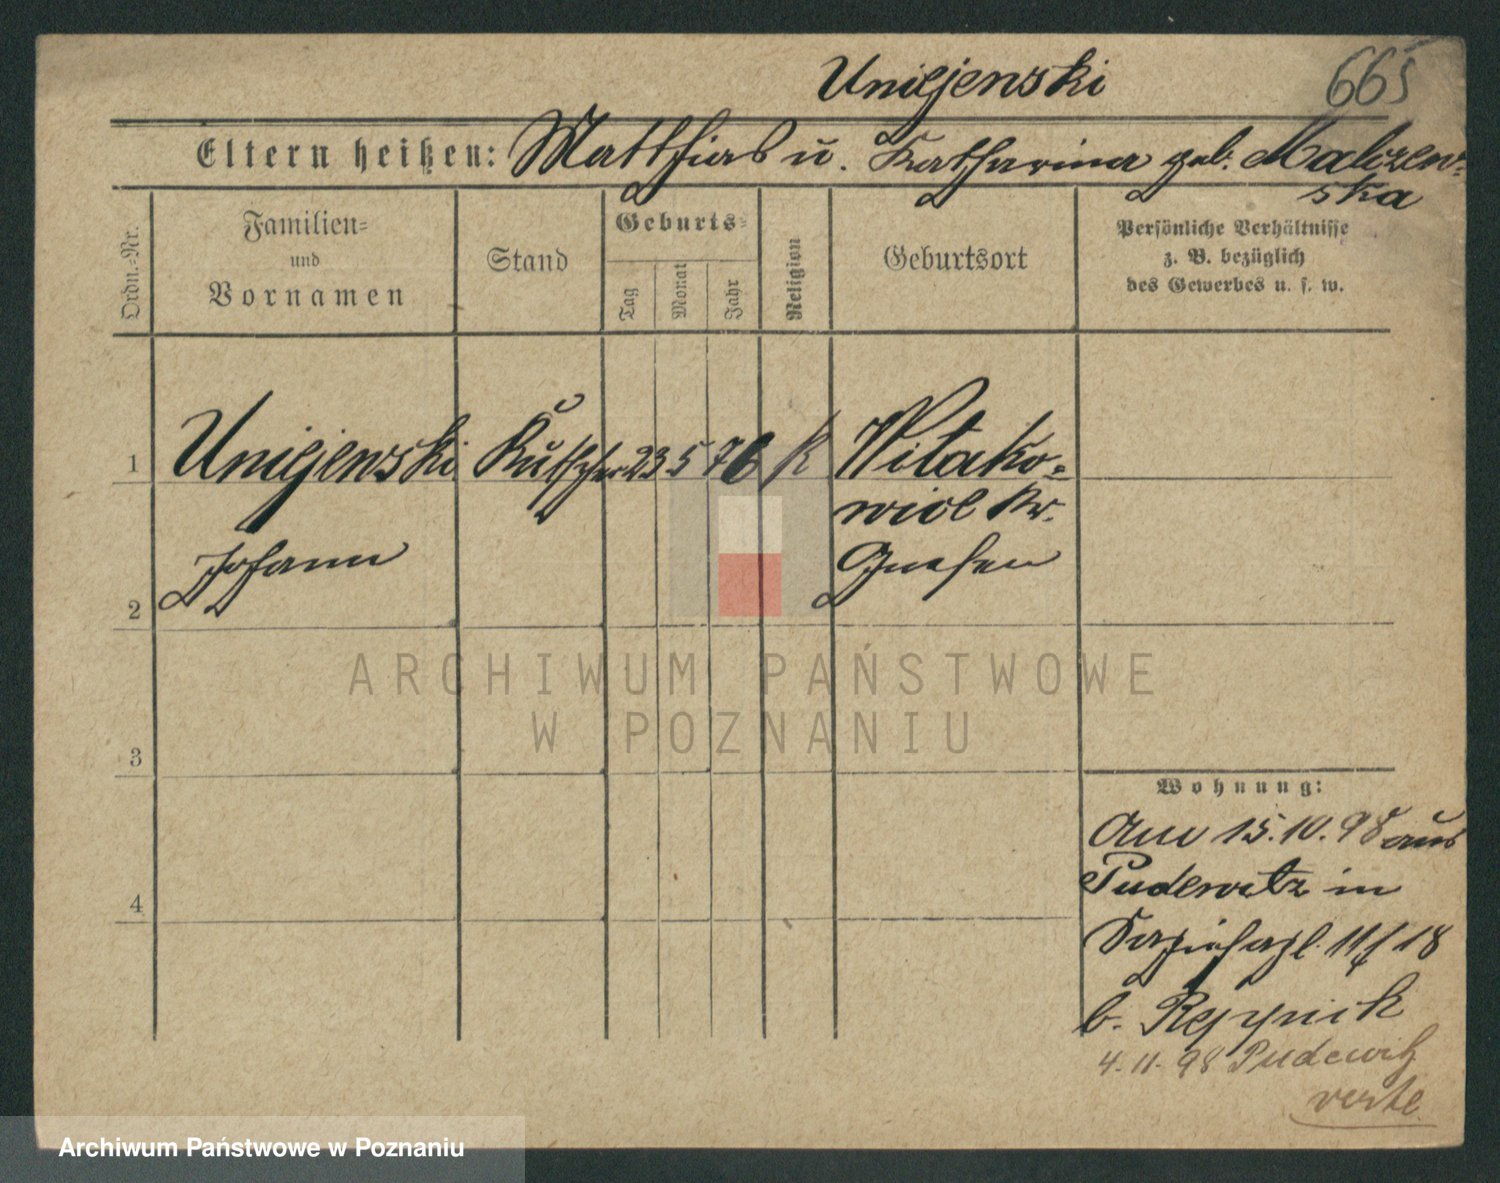 Uniejewski
665
Eltern heißen: Matthias u. Katharina geb. Malczew-
ska
Ordn.-Nr.
Familien-
und
Vornamen
Stand
Geburts-
Tag
Monat
Jahr
Religion
Geburtsort
Persönliche Verhältnisse
z. B. bezüglich
des Gewerbes u. s. w.
1 Uniejewski Kutscher 23 5 76 K Witako-
wice Kr.
Johann Gnesen
2
ARCHIWUM PAŃSTWOWE
W POZNANIU
3
Wohnung:
Am 15.10.98 aus
Pudewitz in
4
18
b.
4.11.98 Pudewitz
verte
Archiwum Państwowe w Poznaniu